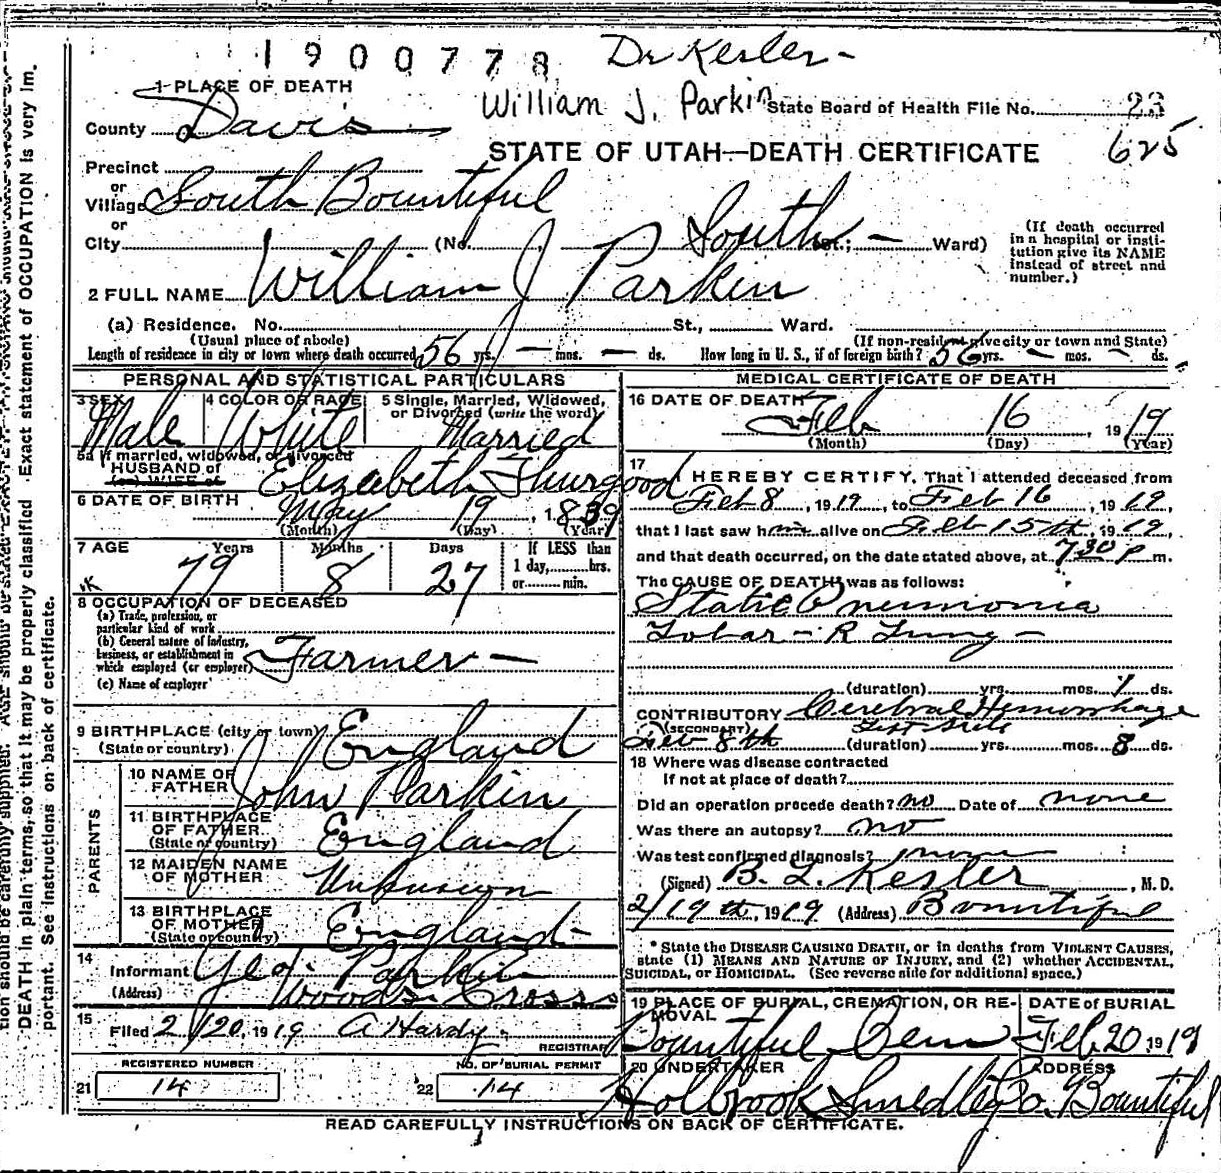 1900778
Dr Kesler-
1-PLACE OF DEATH
William J. Parkin State Board of Health File No. 23
County Davis
625
STATE OF UTAH—DEATH CERTIFICATE
Precinct
or
Village South Bountiful
or
City (No. South St.; — Ward)
(If death occurred in a hospital or institution give its NAME instead of street and number.)
2 FULL NAME William J Parkin
(a) Residence. No. St., Ward.
(Usual place of abode) (If non-resident give city or town and State)
Length of residence in city or town where death occurred 56 yrs. — mos. — ds. How long in U. S., if of foreign birth? 56 yrs. — mos. — ds.
PERSONAL AND STATISTICAL PARTICULARS
3 SEX Male
4 COLOR OR RACE White
5 Single, Married, Widowed, or Divorced (write the word) Married
5a If married, widowed, or divorced
HUSBAND of
(or) WIFE of Elizabeth Thurgood
6 DATE OF BIRTH May 19, 1839
(Month) (Day) (Year)
7 AGE Years Months Days If LESS than
79 8 27 1 day, hrs.
or min.
8 OCCUPATION OF DECEASED
(a) Trade, profession, or
particular kind of work
(b) General nature of industry,
business, or establishment in
which employed (or employer) Farmer —
(c) Name of employer
9 BIRTHPLACE (city or town) England
(State or country)
PARENTS
10 NAME OF FATHER John Parkin
11 BIRTHPLACE OF FATHER (State or country) England
12 MAIDEN NAME OF MOTHER Unknown
13 BIRTHPLACE OF MOTHER (State or country) England-
14
Informant Geo. Parkin
(Address) Woods Cross
15
Filed 2/20, 1919 A Hardy
REGISTRAR
REGISTERED NUMBER NO. OF BURIAL PERMIT
21 14 22 14
MEDICAL CERTIFICATE OF DEATH
16 DATE OF DEATH Feb 16, 1919
(Month) (Day) (Year)
17
I HEREBY CERTIFY, That I attended deceased from
Feb 8, 1919, to Feb 16, 1919,
that I last saw him alive on Feb 15th, 1919,
and that death occurred, on the date stated above, at 7 30 P m.
The CAUSE OF DEATH* was as follows:
Static Pneumonia
Lobar - R Lung -
(duration) yrs. mos. ds.
CONTRIBUTORY Cerebral Hemorrhage
(SECONDARY)
Feb 8th (duration) yrs. mos. 8 ds.
18 Where was disease contracted
If not at place of death?
Did an operation precede death? no Date of none
Was there an autopsy? no
Was test confirmed diagnosis? none
(Signed) B. L. Kesler, M. D.
2/19th, 1919 (Address) Bountiful
* State the DISEASE CAUSING DEATH, or in deaths from VIOLENT CAUSES,
state (1) MEANS AND NATURE OF INJURY, and (2) whether ACCIDENTAL,
SUICIDAL, or HOMICIDAL. (See reverse side for additional space.)
19 PLACE OF BURIAL, CREMATION, OR REMOVAL Bountiful Cem
DATE of BURIAL Feb 20 1919
20 UNDERTAKER Holbrook Smedley Co.
ADDRESS Bountiful
READ CAREFULLY INSTRUCTIONS ON BACK OF CERTIFICATE.
tion should be carefully supplied.
DEATH in plain terms, so that it may be properly classified. Exact statement of OCCUPATION is very im-
portant. See instructions on back of certificate.